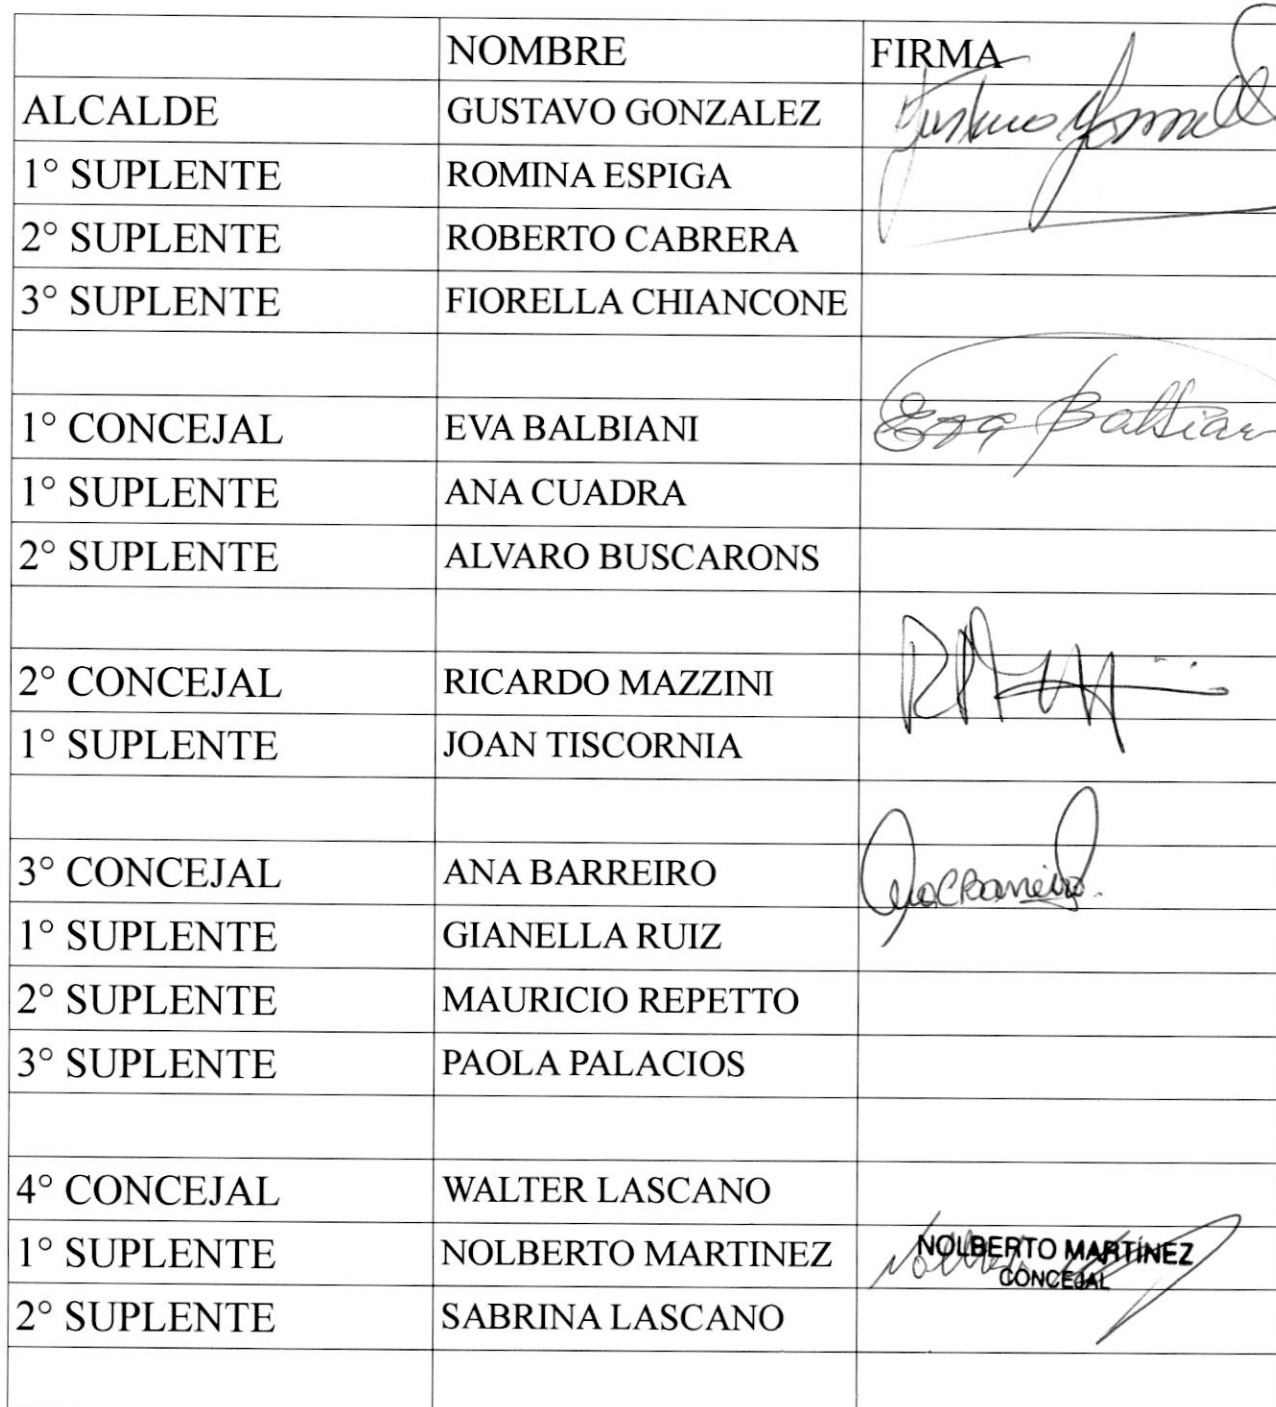 NOMBRE FIRMA
ALCALDE GUSTAVO GONZALEZ Gustavo Gonzalez
1° SUPLENTE ROMINA ESPIGA
2° SUPLENTE ROBERTO CABRERA
3° SUPLENTE FIORELLA CHIANCONE
1° CONCEJAL EVA BALBIANI Eva Balbiani
1° SUPLENTE ANA CUADRA
2° SUPLENTE ALVARO BUSCARONS
2° CONCEJAL RICARDO MAZZINI
1° SUPLENTE JOAN TISCORNIA
3° CONCEJAL ANA BARREIRO
1° SUPLENTE GIANELLA RUIZ
2° SUPLENTE MAURICIO REPETTO
3° SUPLENTE PAOLA PALACIOS
4° CONCEJAL WALTER LASCANO
1° SUPLENTE NOLBERTO MARTINEZ NOLBERTO MARTÍNEZ
CONCEJAL
2° SUPLENTE SABRINA LASCANO